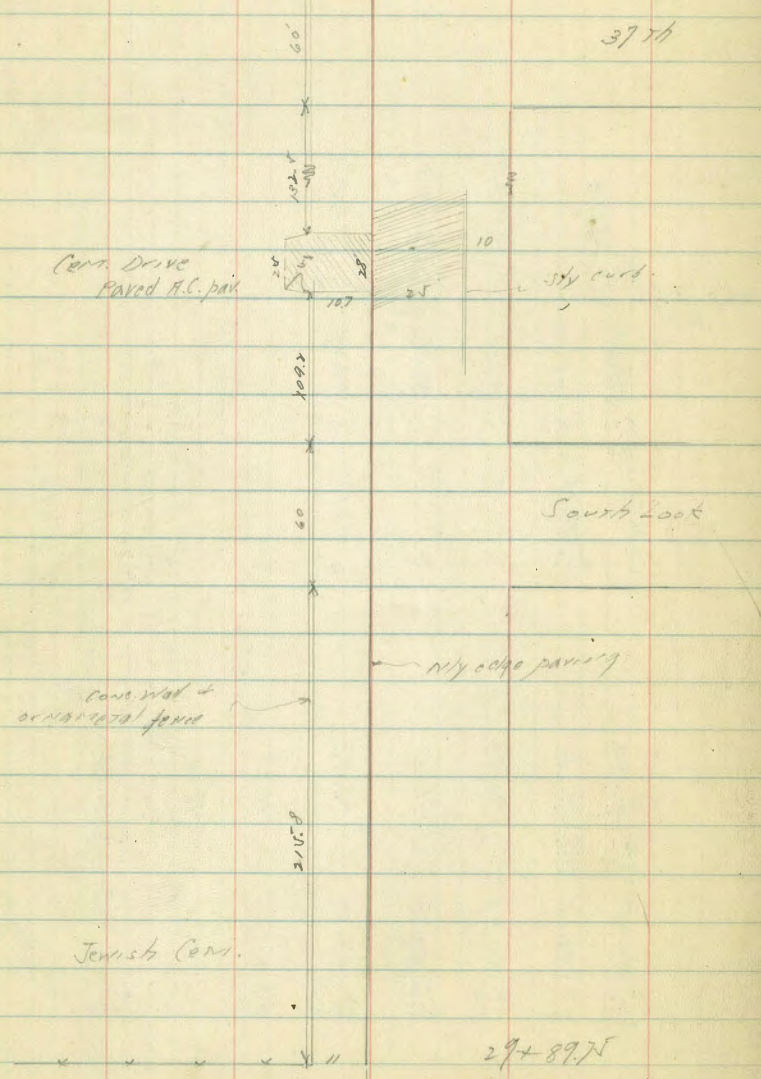 60'
37 Th
132.5
Cem. Drive
Paved A.C. pav.
25
28
10.7
25
10
sly curb
109.2
60
South Look
nly edge paving
conc. wall &
ornametal fence
215.8
Jewish Cem.
11
29+89.75